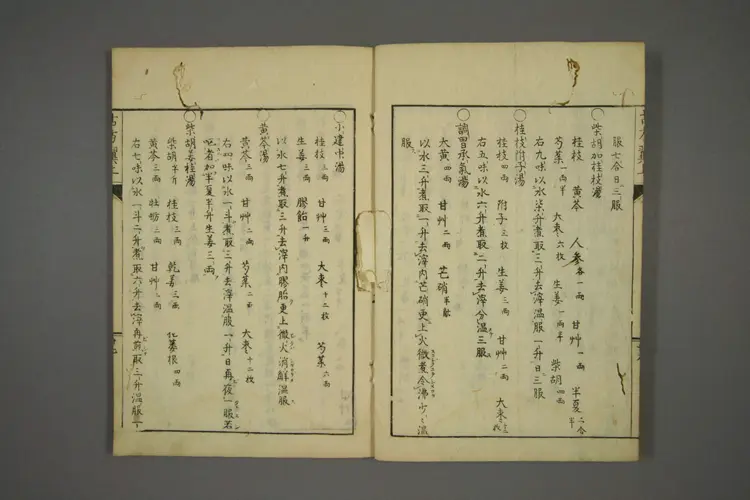 服七合日三服
〇柴胡加桂枝湯
桂枝 黄芩 人參各一両 甘艸一両 半夏二合半
芍薬一両半 大棗六枚 生姜一両半 柴胡四両
右九味以水柒升煮取三升去滓温服一升日三服
〇桂枝附子湯
桂枝四両 附子三枚 生姜三両 甘艸二両 大棗
右五味以水六升煮取二升去滓分温三服
〇調胃承氣湯
大黄四両 甘艸二両 芒硝半
以水三升煮取一升去滓内芒硝更上火微煮令沸少〻温
服
〇小建中湯
桂枝三両 甘艸三両 大棗十二枚 芍薬六両
生姜三両 膠飴一升
以水七升煮取三升去滓内膠飴更上微火消解温服
〇黄芩湯
黄芩三両 甘艸二両 芍薬二両 大棗十二枚
右四味以水一斗煮取三升去滓温服一升日再夜一服若
嘔者加半夏半升生姜三両
〇柴胡姜桂湯
柴胡半斤 桂枝三両 乾姜三両 栝蔞根四両
黄芩三両 牡蛎三両 甘艸二両
右七味以水一斗二升煮取六升去滓再煎取三升温服一